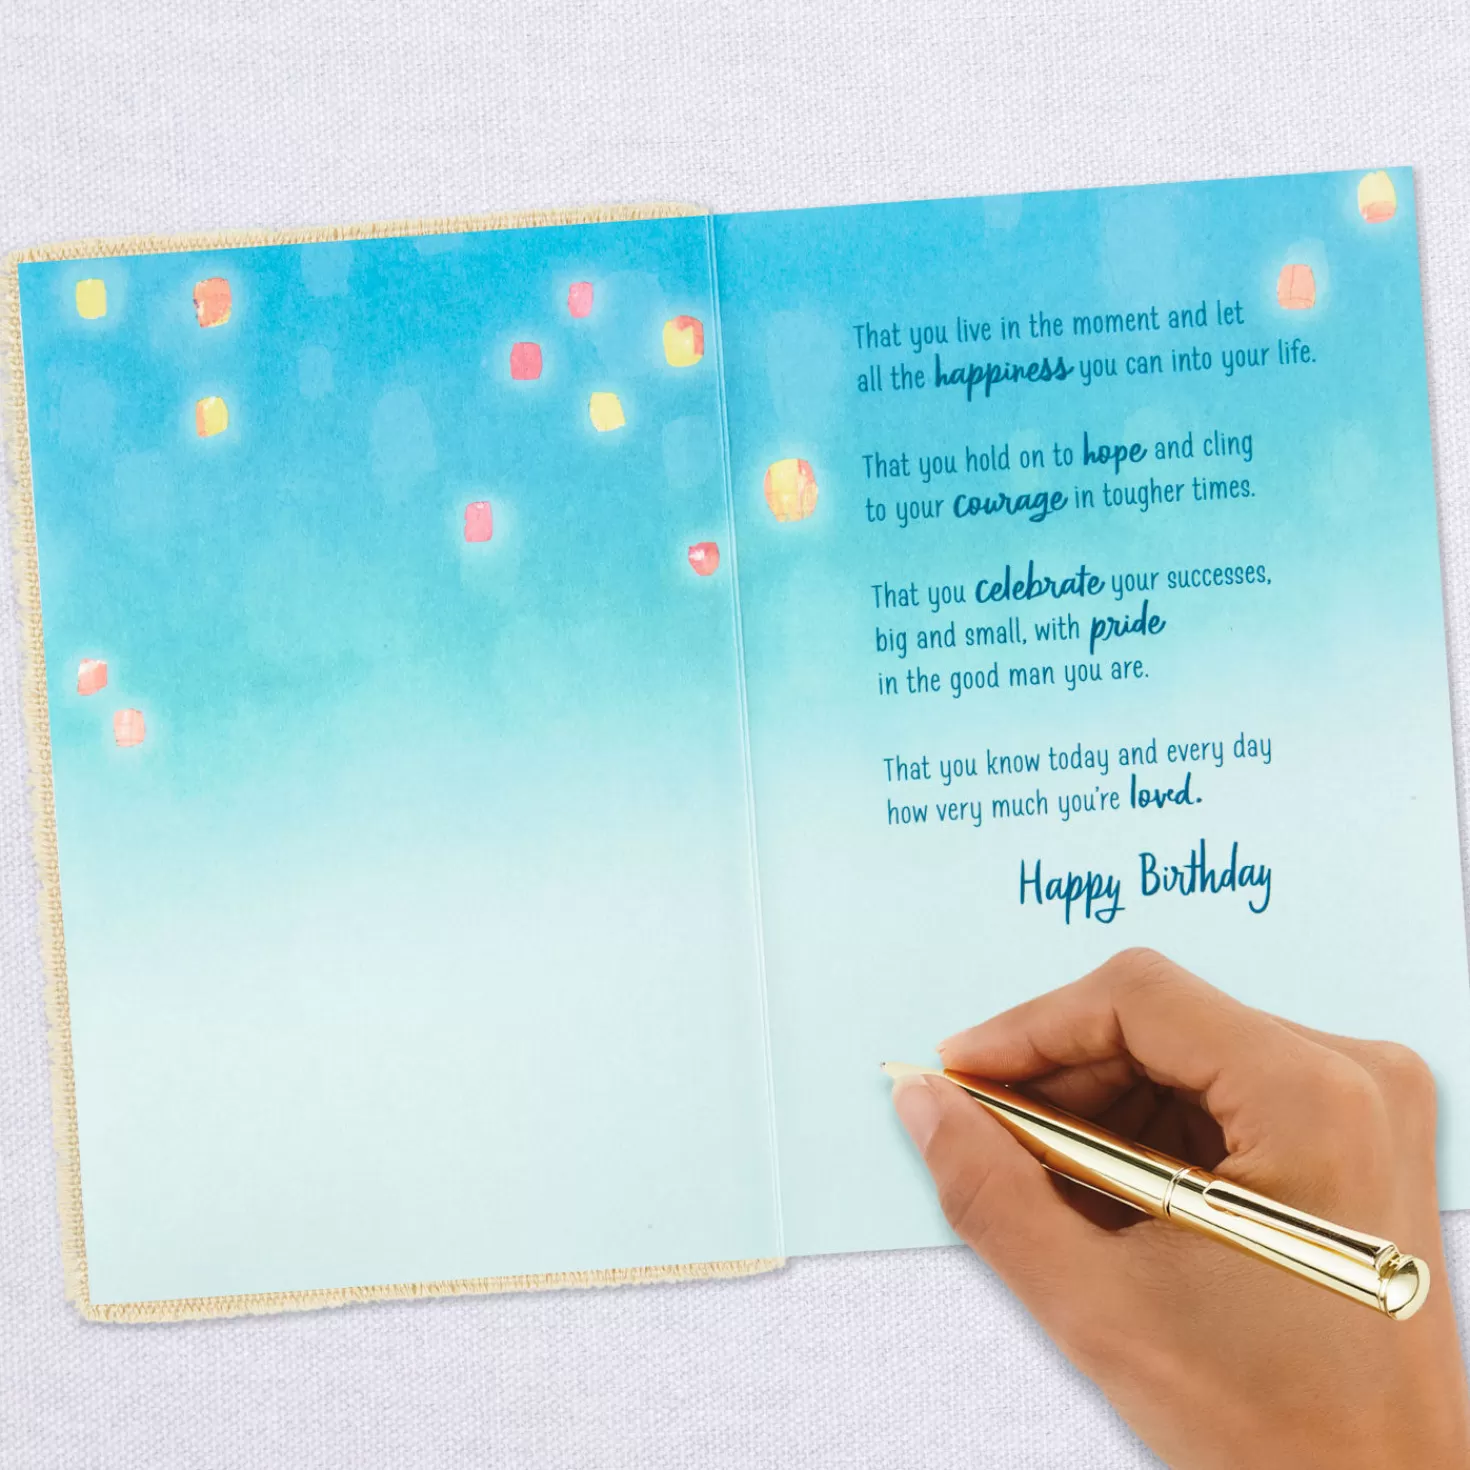 That you live in the moment and let
all the happiness you can into your life.
That you hold on to hope and cling
to your courage in tougher times.
That you celebrate your successes,
big and small, with pride
in the good man you are.
That you know today and every day
how very much you're loved.
Happy Birthday